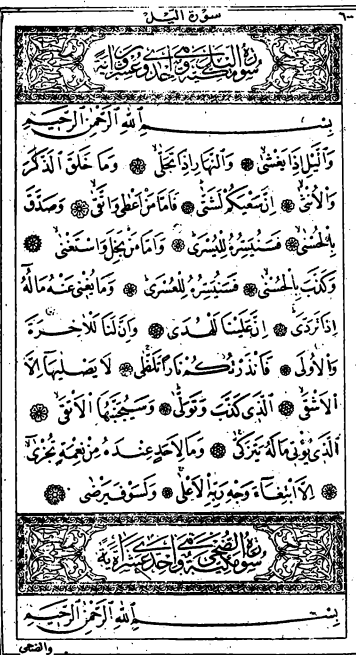 ٦٠٠ سورة اليل
سورة اليل مكية وهي احدى وعشرون اية
بِسْمِ اللّٰهِ الرَّحْمٰنِ الرَّحِيمِ
وَالَّيْلِ اِذَا يَغْشٰى ۞ وَالنَّهَارِ اِذَا تَجَلّٰى ۞ وَمَا خَلَقَ الذَّكَرَ
وَالْاُنْثٰى ۞ اِنَّ سَعْيَكُمْ لَشَتّٰى ۞ فَاَمَّا مَنْ اَعْطٰى وَاتَّقٰى ۞ وَصَدَّقَ
بِالْحُسْنٰى ۞ فَسَنُيَسِّرُهُ لِلْيُسْرٰى ۞ وَاَمَّا مَنْ بَخِلَ وَاسْتَغْنٰى ۞
وَكَذَّبَ بِالْحُسْنٰى ۞ فَسَنُيَسِّرُهُ لِلْعُسْرٰى ۞ وَمَا يُغْنِى عَنْهُ مَالُهُ
اِذَا تَرَدّٰى ۞ اِنَّ عَلَيْنَا لَلْهُدٰى ۞ وَاِنَّ لَنَا لَلْاٰخِرَةَ
وَالْاُولٰى ۞ فَاَنْذَرْتُكُمْ نَارًا تَلَظّٰى ۞ لَا يَصْلٰيهَا اِلَّا
الْاَشْقٰى ۞ اَلَّذِى كَذَّبَ وَتَوَلّٰى ۞ وَسَيُجَنَّبُهَا الْاَتْقٰى ۞
اَلَّذِى يُؤْتِى مَالَهُ يَتَزَكّٰى ۞ وَمَا لِاَحَدٍ عِنْدَهُ مِنْ نِعْمَةٍ تُجْزٰى
۞ اِلَّا ابْتِغَاءَ وَجْهِ رَبِّهِ الْاَعْلٰى ۞ وَلَسَوْفَ يَرْضٰى ۞
سورة الضحى مكية وهي احدى عشرة اية
بِسْمِ اللّٰهِ الرَّحْمٰنِ الرَّحِيمِ
والضحى